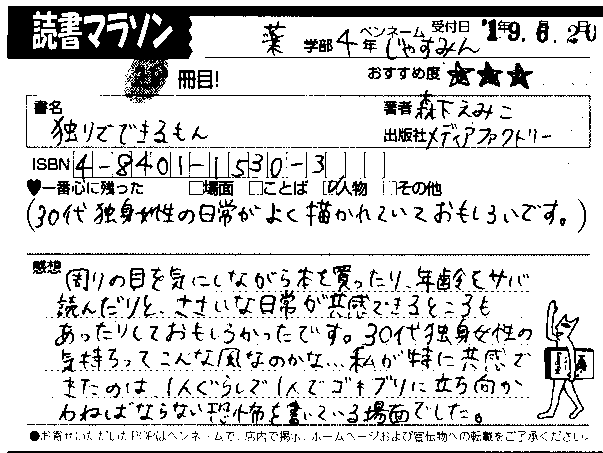 読書マラソン
薬 学部 4 年 ペンネーム じゃすみん 受付日 '19. 6. 20
冊目! おすすめ度 ★★★
書名 独りでできるもん 著者 森下えみこ
出版社 メディアファクトリー
ISBN 4-8401-1530-3
♥一番心に残った □場面 □ことば ☑人物 □その他
(30代独身女性の日常がよく描かれていておもしろいです。)
感想 周りの目を気にしながら本を買ったり、年齢をサバ
読んだりと、ささいな日常が共感できるところも
あったりしておもしろかったです。30代独身女性の
気持ちってこんな風なのかな… 私が特に共感で
きたのは、1人ぐらしで1人でゴキブリに立ち向か
わねばならない恐怖を書いている場面でした。
●お寄せいただいたPOPはペンネームで、店内で掲示、ホームページおよび宣伝物への転載をご了承ください。